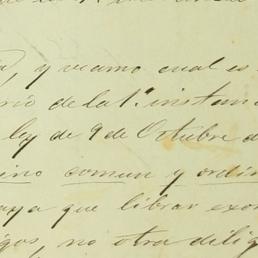 y veamo cual es
rio de la 1ª instan
ley de 9 de Octubre d
ino comun y ordin
aya que librar exor
igos, no otra dilig